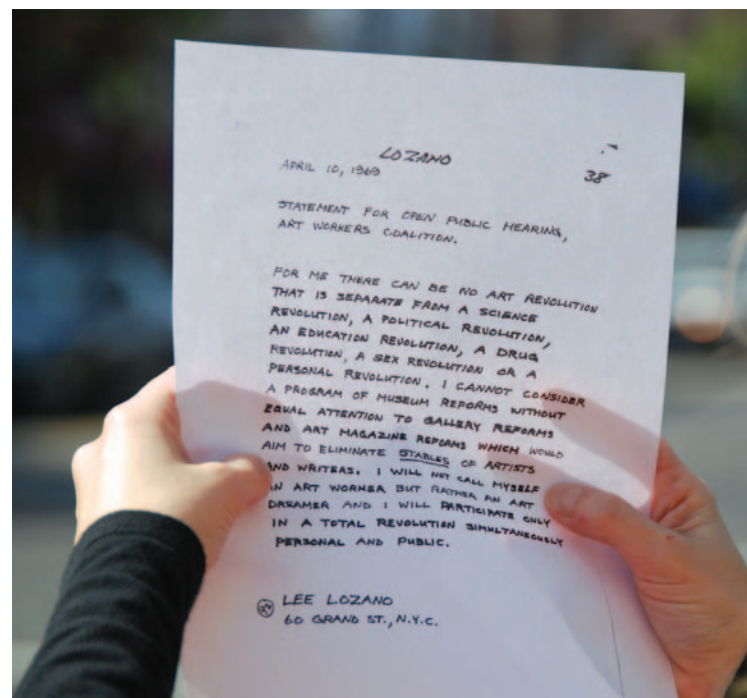 LOZANO
APRIL 10, 1969
38
STATEMENT FOR OPEN PUBLIC HEARING,
ART WORKERS COALITION.
FOR ME THERE CAN BE NO ART REVOLUTION
THAT IS SEPARATE FROM A SCIENCE
REVOLUTION, A POLITICAL REVOLUTION,
AN EDUCATION REVOLUTION, A DRUG
REVOLUTION, A SEX REVOLUTION OR A
PERSONAL REVOLUTION. I CANNOT CONSIDER
A PROGRAM OF MUSEUM REFORMS WITHOUT
EQUAL ATTENTION TO GALLERY REFORMS
AND ART MAGAZINE REFORMS WHICH WOULD
AIM TO ELIMINATE STABLES OF ARTISTS
AND WRITERS. I WILL NOT CALL MYSELF
AN ART WORKER BUT RATHER AN ART
DREAMER AND I WILL PARTICIPATE ONLY
IN A TOTAL REVOLUTION SIMULTANEOUSLY
PERSONAL AND PUBLIC.
LEE LOZANO
60 GRAND ST., N.Y.C.